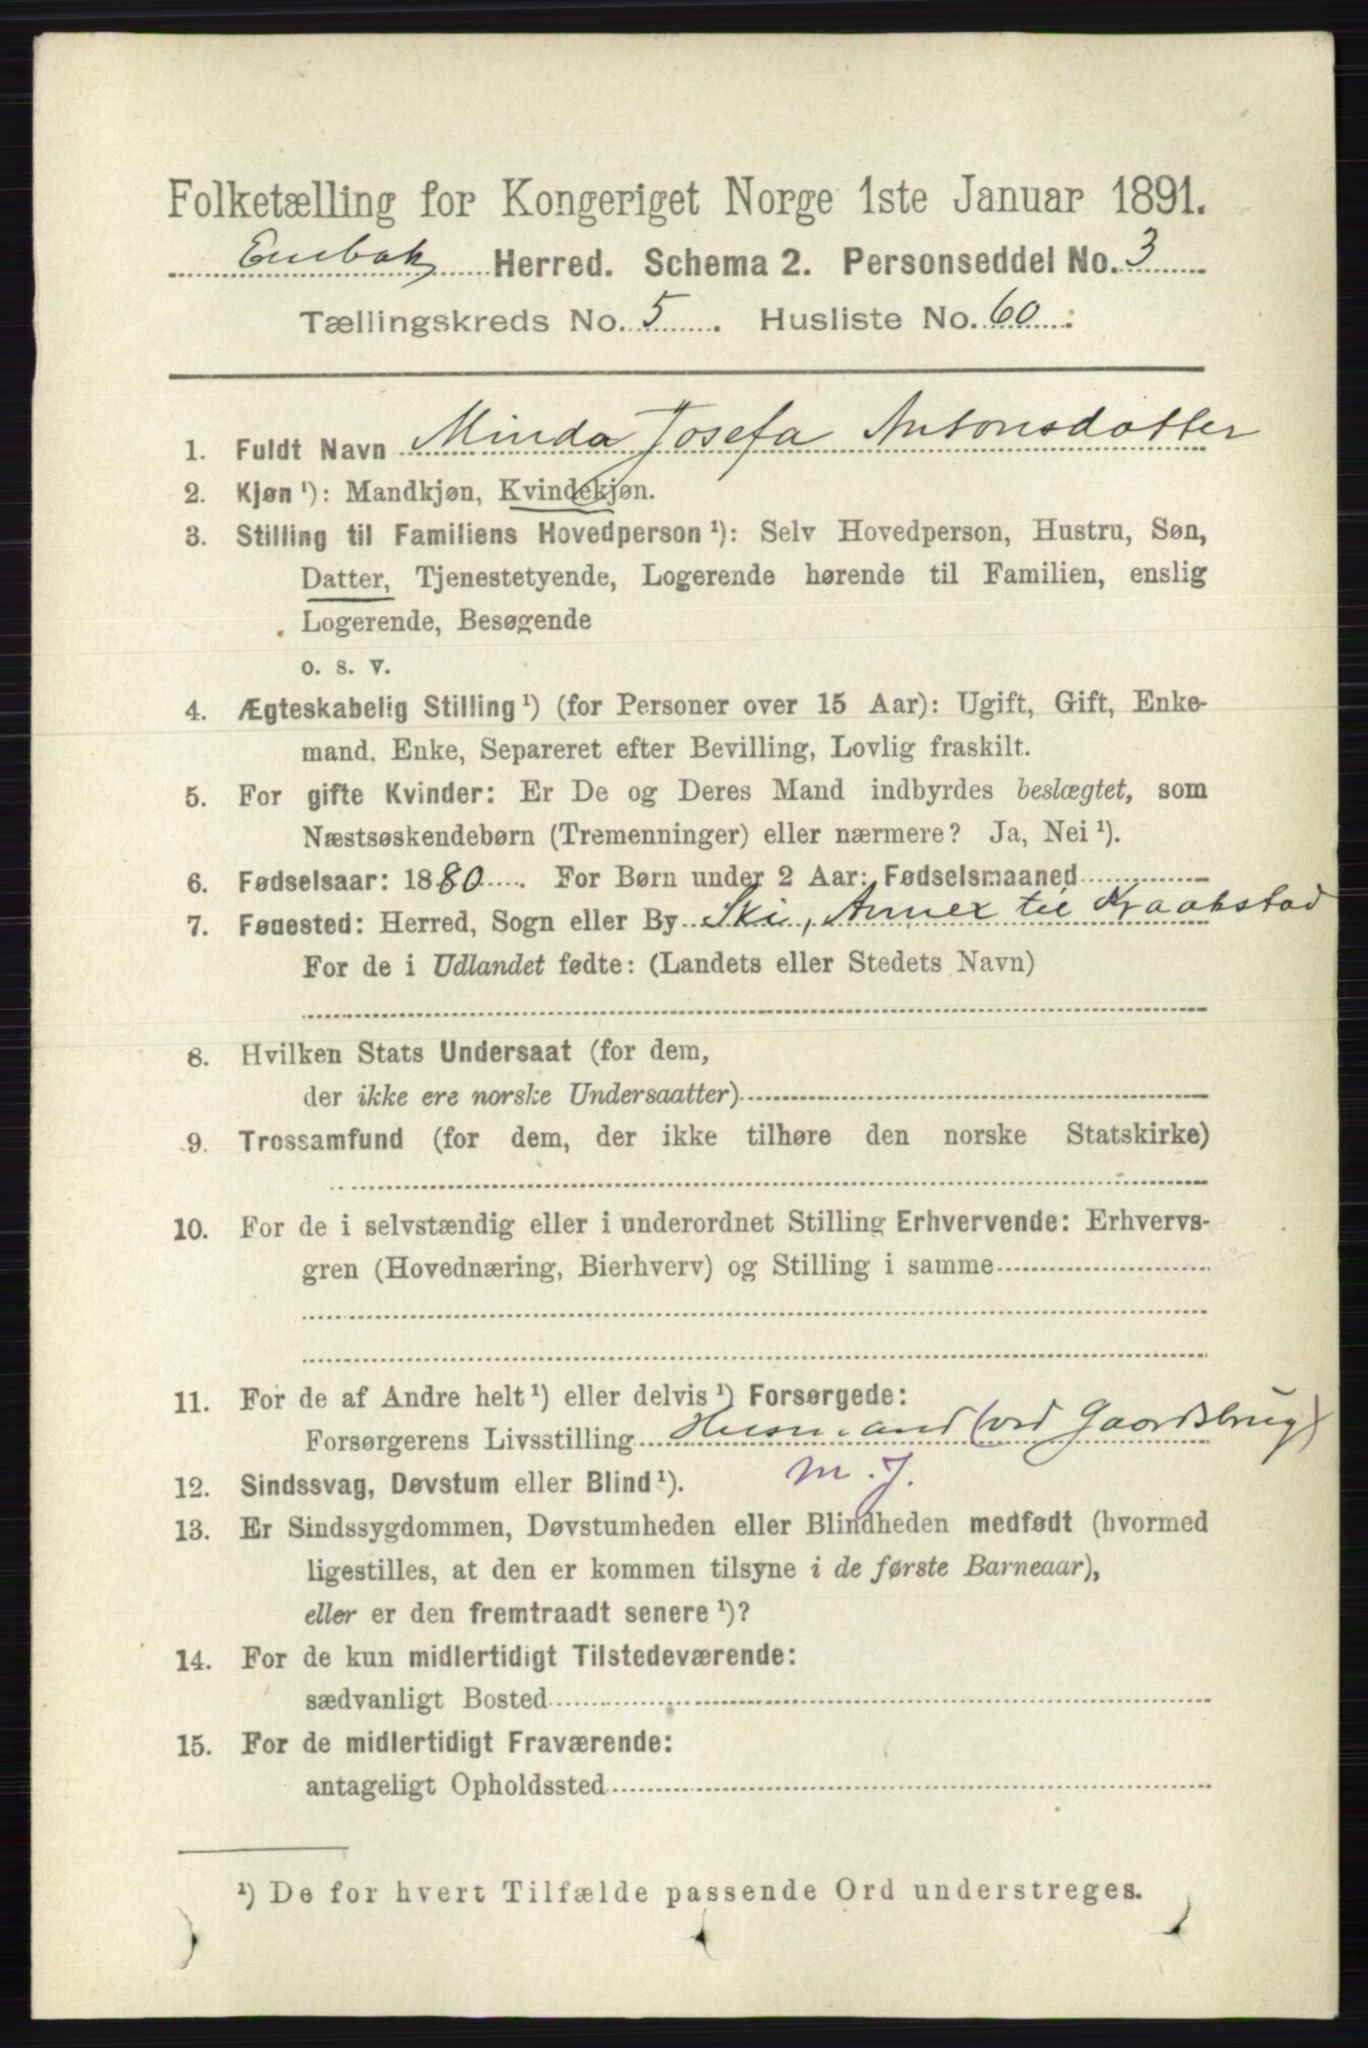 Folketælling for Kongeriget Norge 1ste Januar 1891.
Enebak Herred. Schema 2. Personseddel No. 3
Tællingskreds No. 5. Husliste No. 60.
1. Fuldt Navn Minda Josefa Antonsdatter
2. Kjøn ¹): Mandkjøn, Kvindekjøn.
3. Stilling til Familiens Hovedperson ¹): Selv Hovedperson, Hustru, Søn,
Datter, Tjenestetyende, Logerende hørende til Familien, enslig
Logerende, Besøgende
o. s. v.
4. Ægteskabelig Stilling ¹) (for Personer over 15 Aar): Ugift, Gift, Enke-
mand, Enke, Separeret efter Bevilling, Lovlig fraskilt.
5. For gifte Kvinder: Er De og Deres Mand indbyrdes beslægtet, som
Næstsøskendebørn (Tremenninger) eller nærmere? Ja, Nei ¹).
6. Fødselsaar: 1880. For Børn under 2 Aar: Fødselsmaaned
7. Fødested: Herred, Sogn eller By Ski, Annex til Kraakstad
For de i Udlandet fødte: (Landets eller Stedets Navn)
8. Hvilken Stats Undersaat (for dem,
der ikke ere norske Undersaatter)
9. Trossamfund (for dem, der ikke tilhøre den norske Statskirke)
10. For de i selvstændig eller i underordnet Stilling Erhvervende: Erhvervs-
gren (Hovednæring, Bierhverv) og Stilling i samme
11. For de af Andre helt ¹) eller delvis ¹) Forsørgede:
Forsørgerens Livsstilling Husmand (ved Gaardsbrug)
m. J.
12. Sindssvag, Døvstum eller Blind ¹).
13. Er Sindssygdommen, Døvstumheden eller Blindheden medfødt (hvormed
ligestilles, at den er kommen tilsyne i de første Barneaar),
eller er den fremtraadt senere ¹)?
14. For de kun midlertidigt Tilstedeværende:
sædvanligt Bosted
15. For de midlertidigt Fraværende:
antageligt Opholdssted
¹) De for hvert Tilfælde passende Ord understreges.